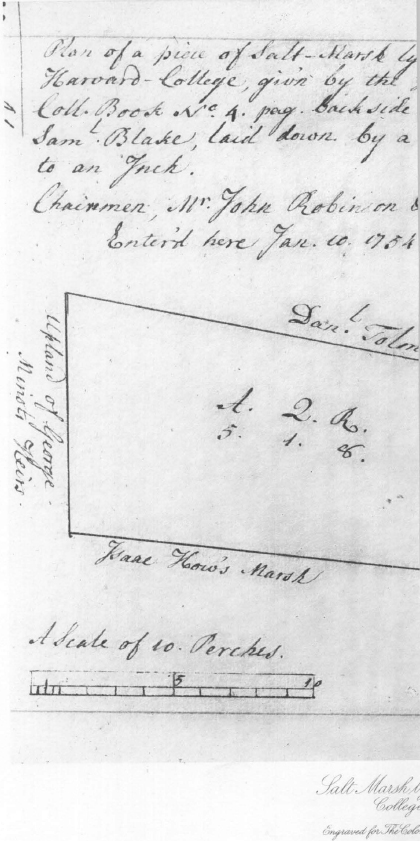 Plan of a piece of Salt-Marsh ly
Harvard-College, giv'n by the
Coll. Book No. 4. pag. backside
Saml. Blake, laid down by a
to an Inch.
Chainmen, Mr. John Robinson &
Enter'd here Jan. 10. 1754
Danl. Tolm
Upland of George
Minots Heirs.
A. Q. R.
5. 1. 8.
Isaac How's Marsh
A Scale of 10. Perches.
5 10
Salt Marsh
Colleg
Engraved for The Colo